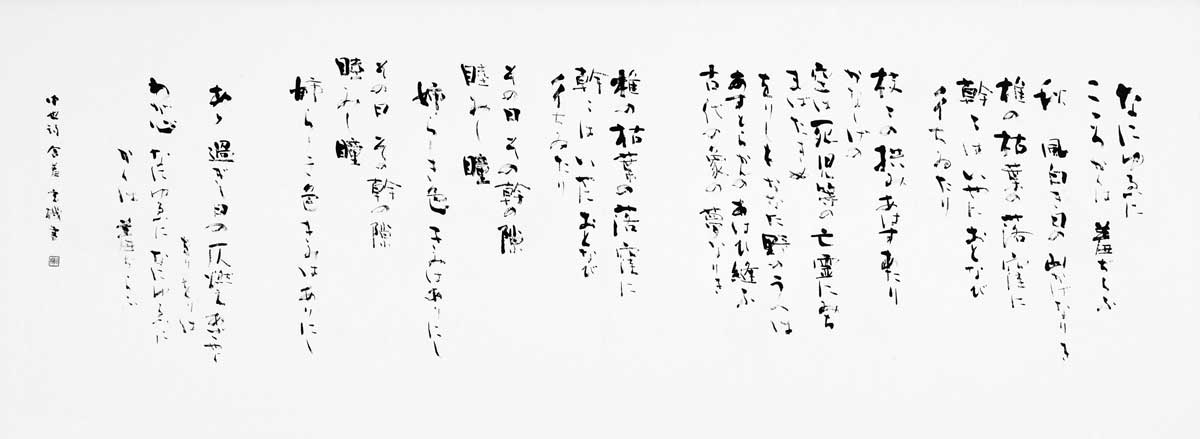 なにゆゑに
こころかくは 羞ぢらふ
秋 風白き日の山かげなりき
椎の枯葉の落窪に
幹々は いやにおとなび
彳ちゐたり
枝々の 拱みあはすあたり
かなしげの
空は死児等の亡霊にみち
まばたきぬ
をりしもかなた野のうへは
あすとらかんのあはひ縫ふ
古代の象の夢なりき
椎の枯葉の落窪に
幹々は いやにおとなび
彳ちゐたり
その日 その幹の隙
睦みし瞳
姉らしき色 きみはありにし
その日 その幹の隙
睦みし瞳
姉らしき色 きみはありにし
あゝ 過ぎし日の 仄燃えあざやぐ
をりをりは
わが心 なにゆゑに なにゆゑに
かくは 羞ぢらふ
中也詩 含羞 書